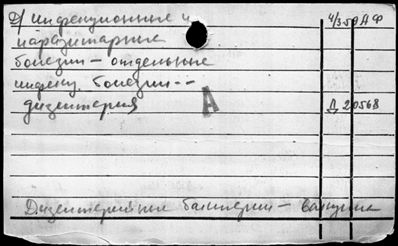 д/ Инфекционные и 4/3-59 АФ
паразитарные
болезни — отдельные
инфекц. болезни --
дизентерия А Д 20568
Дизентерийные бактерии — вакцина